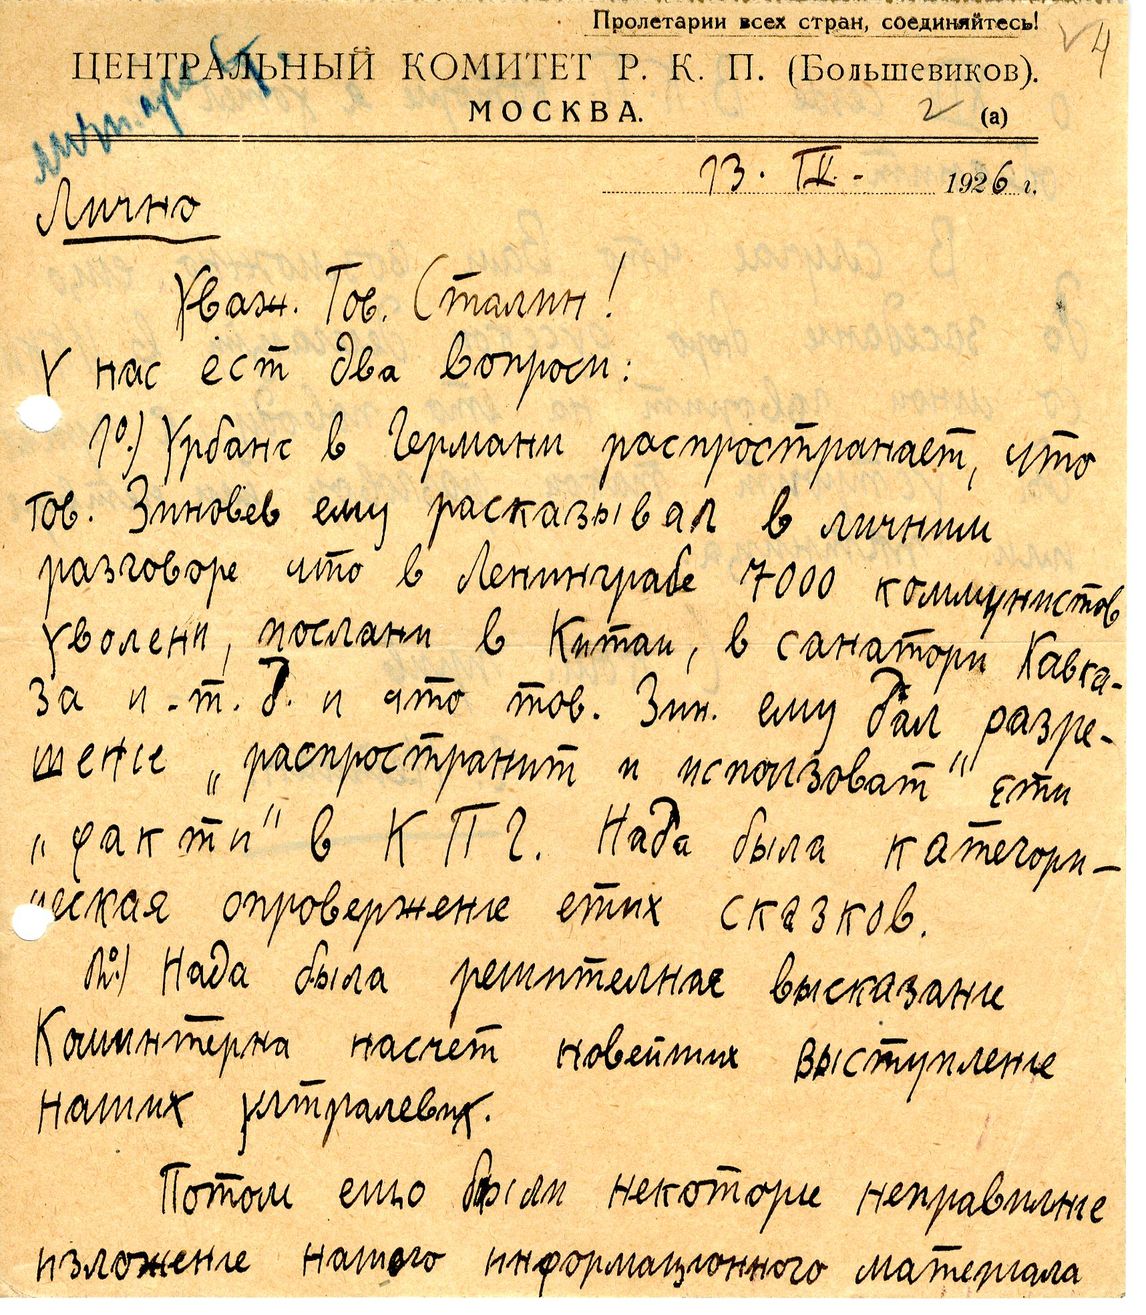 Пролетарии всех стран, соединяйтесь!
4
ЦЕНТРАЛЬНЫЙ КОМИТЕТ Р. К. П. (Большевиков).
МОСКВА.
2 (а)
13. IV. - 1926 г.
Лично
Уваж. Тов. Сталин!
У нас ест два вопроси:
1º.) Урбанс в Германи распространает, что
тов. Зиновев ему расказывал в личним
разговоре что в Ленинграбе 7000 коммунистов
уволени, послани в Китаи, в санатори Кавка-
за и - т. д. и что тов. Зин. ему дал разре-
шение „распространит и использоват“ ети
„факти“ в КПГ. Нада была категори-
ческая опровержение етих сказков.
2º.) Нада была решителная высказание
Коминтерна насчет новейших выступление
наших ултралевих.
Потом ещо были некоторие неправилние
изложение нашого информационного материала